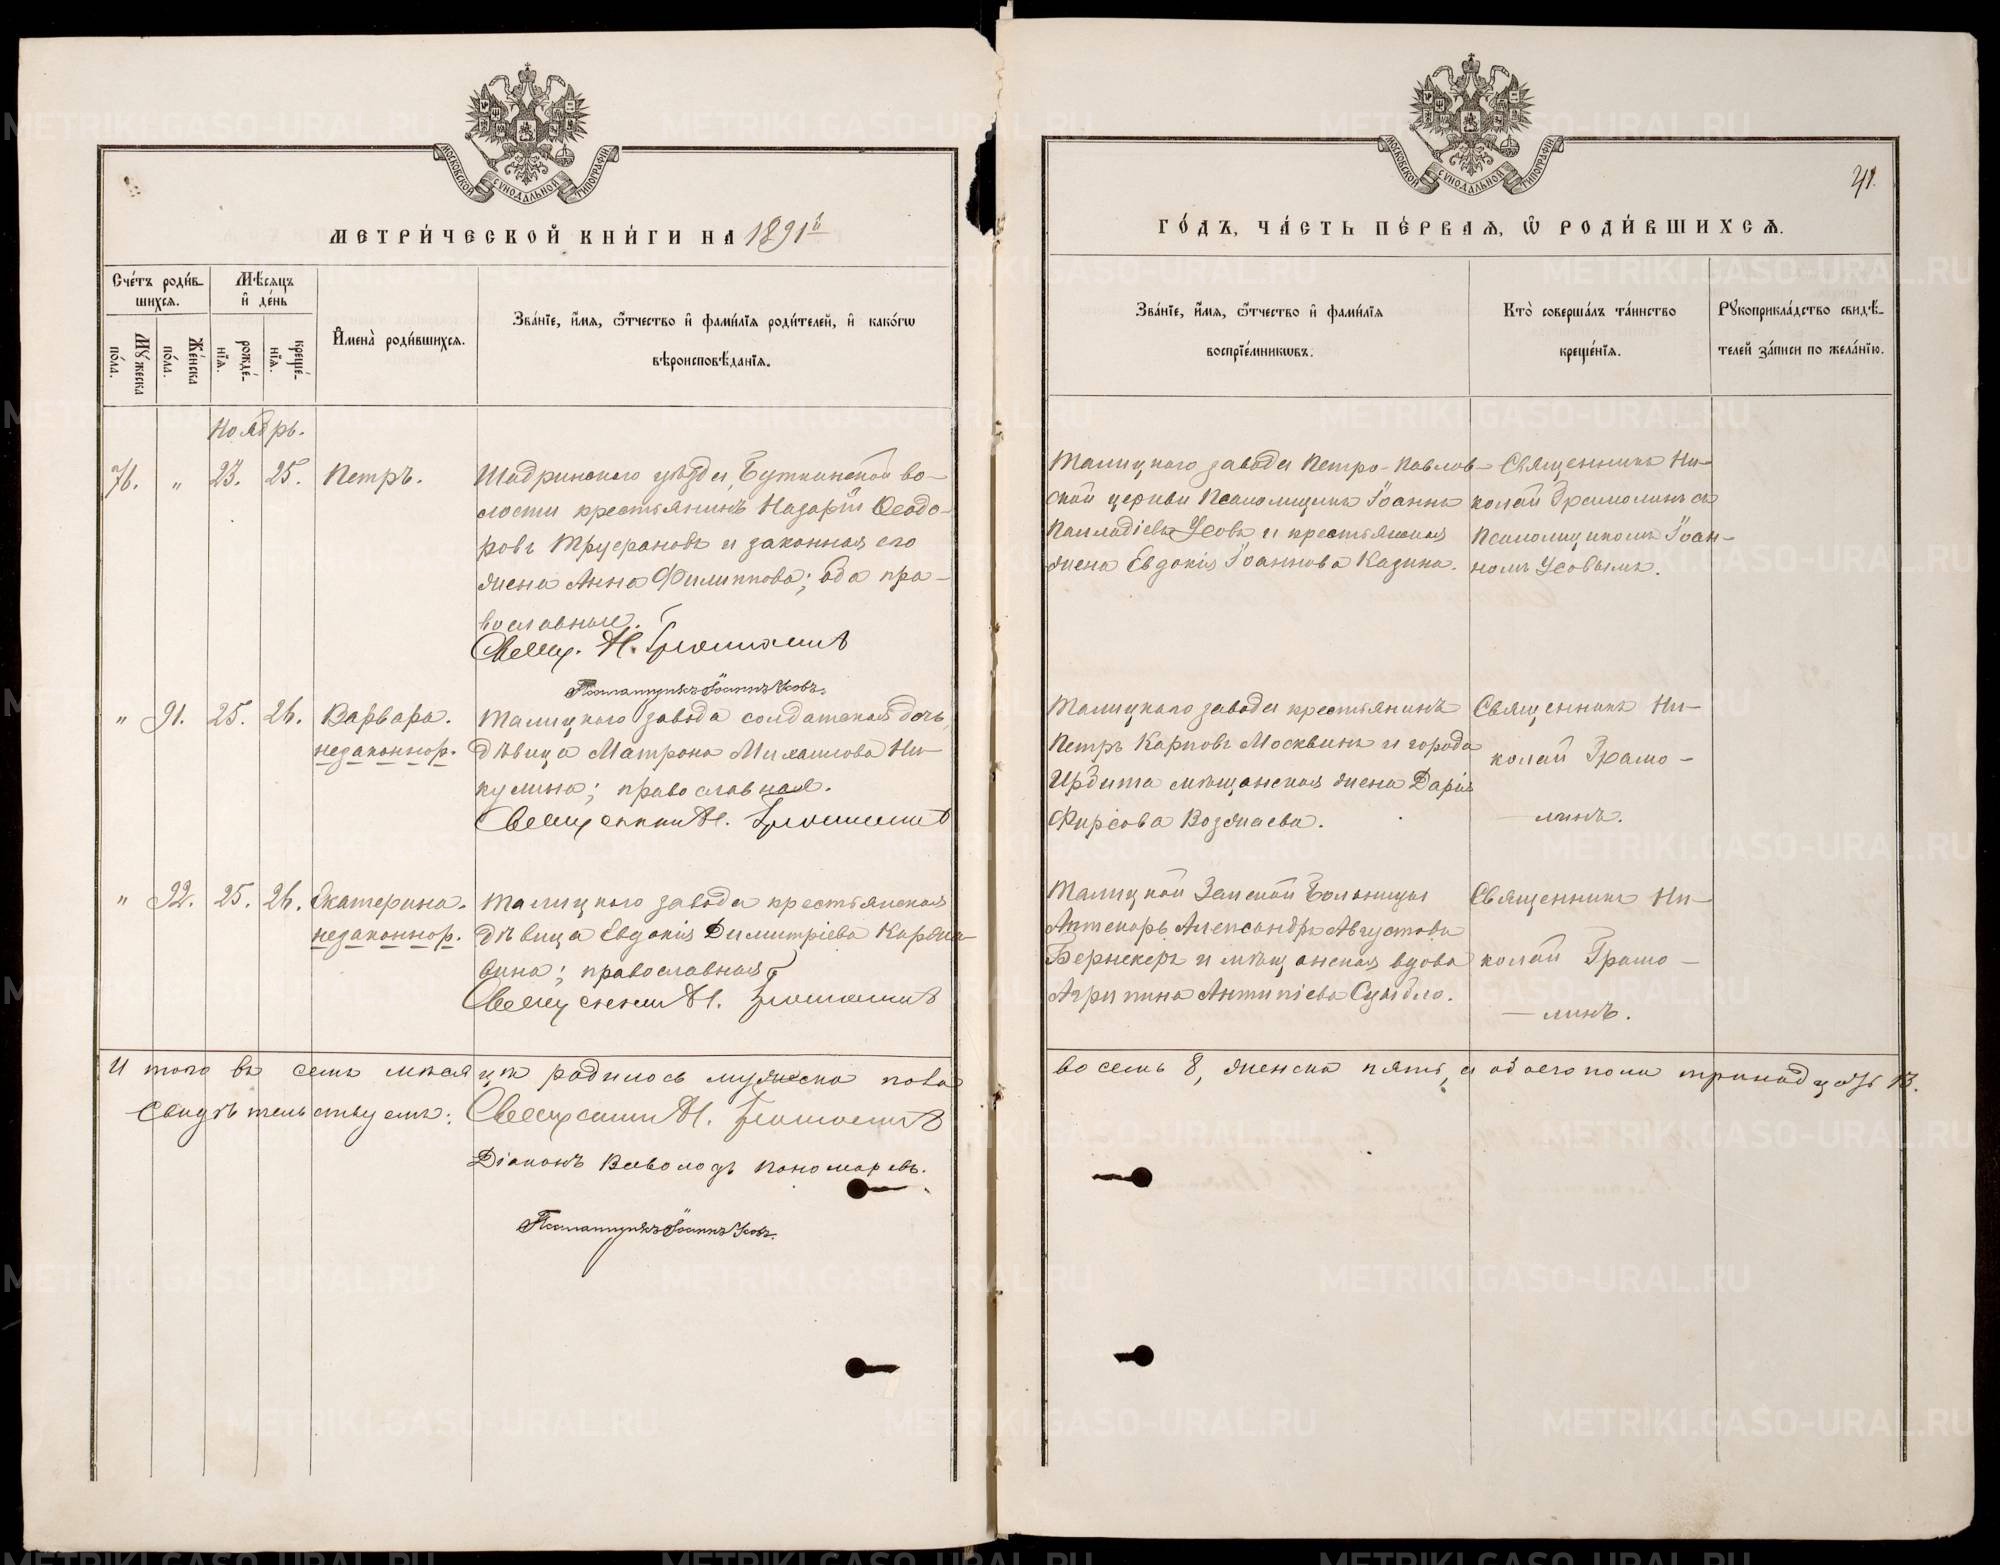 МОСКОВСКОЙ СѴНОДАЛЬНОЙ ТИПОГРАФІИ
МЕТРИ́ЧЕСКОЙ КНИ́ГИ НА 1891й
Сче́тъ роди́вшихся.
Мѣ́сяцъ и҆ де́нь
Мꙋ́жеска по́ла.
Же́нска по́ла.
рожде́нїѧ.
креще́нїѧ.
И҆мена̀ роди́вшихсѧ.
Зва́нїе, и҆́мѧ, ѻ҆́тчество и҆ фами́лїѧ роди́телей, и҆ како́гѡ
вѣроисповѣ́данїѧ.
Ноябрь.
76. " 23. 25. Петръ.
Шадринскаго уѣзда, Буткинской во-
лости крестьянинъ Назарій Ѳеодо-
ровъ Трусрановъ и законная его
жена Анна Филиппова; оба пра-
вославные.
Свящ. Н. Грамолинъ
Псаломщикъ Іоаннъ Усовъ.
" 91. 25. 26. Варвара.
незаконнор.
Талицкаго завода солдатская дочь,
дѣвица Матрона Михаилова Ни-
кулина; православная.
Священникъ Н. Грамолинъ
" 92. 25. 26. Екатерина.
незаконнор.
Талицкаго завода крестьянская
дѣвица Евдокія Димитріева Каржа-
вина; православная
Священникъ Н. Грамолинъ
Итого въ семъ мѣсяцѣ родилось мужеска пола
Свидѣтельствуемъ: Священникъ Н. Грамолинъ
Діаконъ Всеволодъ Пономаревъ.
Псаломщикъ Іоаннъ Усовъ.
МОСКОВСКОЙ СѴНОДАЛЬНОЙ ТИПОГРАФІИ
41.
ГО́ДЪ, ЧА́СТЬ ПЕ́РВАѦ, Ѡ҆ РОДИ́ВШИХСѦ.
Зва́нїе, и҆́мѧ, ѻ҆́тчество и҆ фами́лїѧ
воспрїе́мникѡвъ.
Кто̀ соверша́лъ та́инство
креще́нїѧ.
Рꙋкоприкла́дство свидѣ́-
телей за́писи по жела́нїю.
Талицкаго завода Петро-Павлов-
ской церкви Псаломщикъ Іоаннъ
Палладіевъ Усовъ и крестьянская
жена Евдокія Іоаннова Казина.
Священникъ Ни-
колай Грамолинъ съ
Псаломщикомъ Іоан-
номъ Усовымъ.
Талицкаго завода крестьянинъ
Петръ Карповъ Москвинъ и города
Ирбита мѣщанская жена Дарія
Фирсова Возжаева.
Священникъ Ни-
колай Грамо-
линъ.
Талицкой Земской Больницы
Аптекарь Александръ Августовъ
Бернекеръ и мѣщанская вдова
Агрипина Антипіева
Священникъ Ни-
колай Грамо-
линъ.
восемь 8, женска пять, а обоего пола тринадцать 13.
METRIKI.GASO-URAL.RU